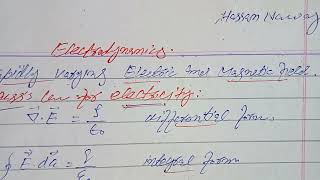 Hassan Nawaz
Electrodynamics.
Rapidly varying Electric and Magnetic field.
Gauss's law for electricity:
∇⃗·E⃗ = ρ/ε₀ differential form.
∮ E⃗·da⃗ = q/ε₀ integral form